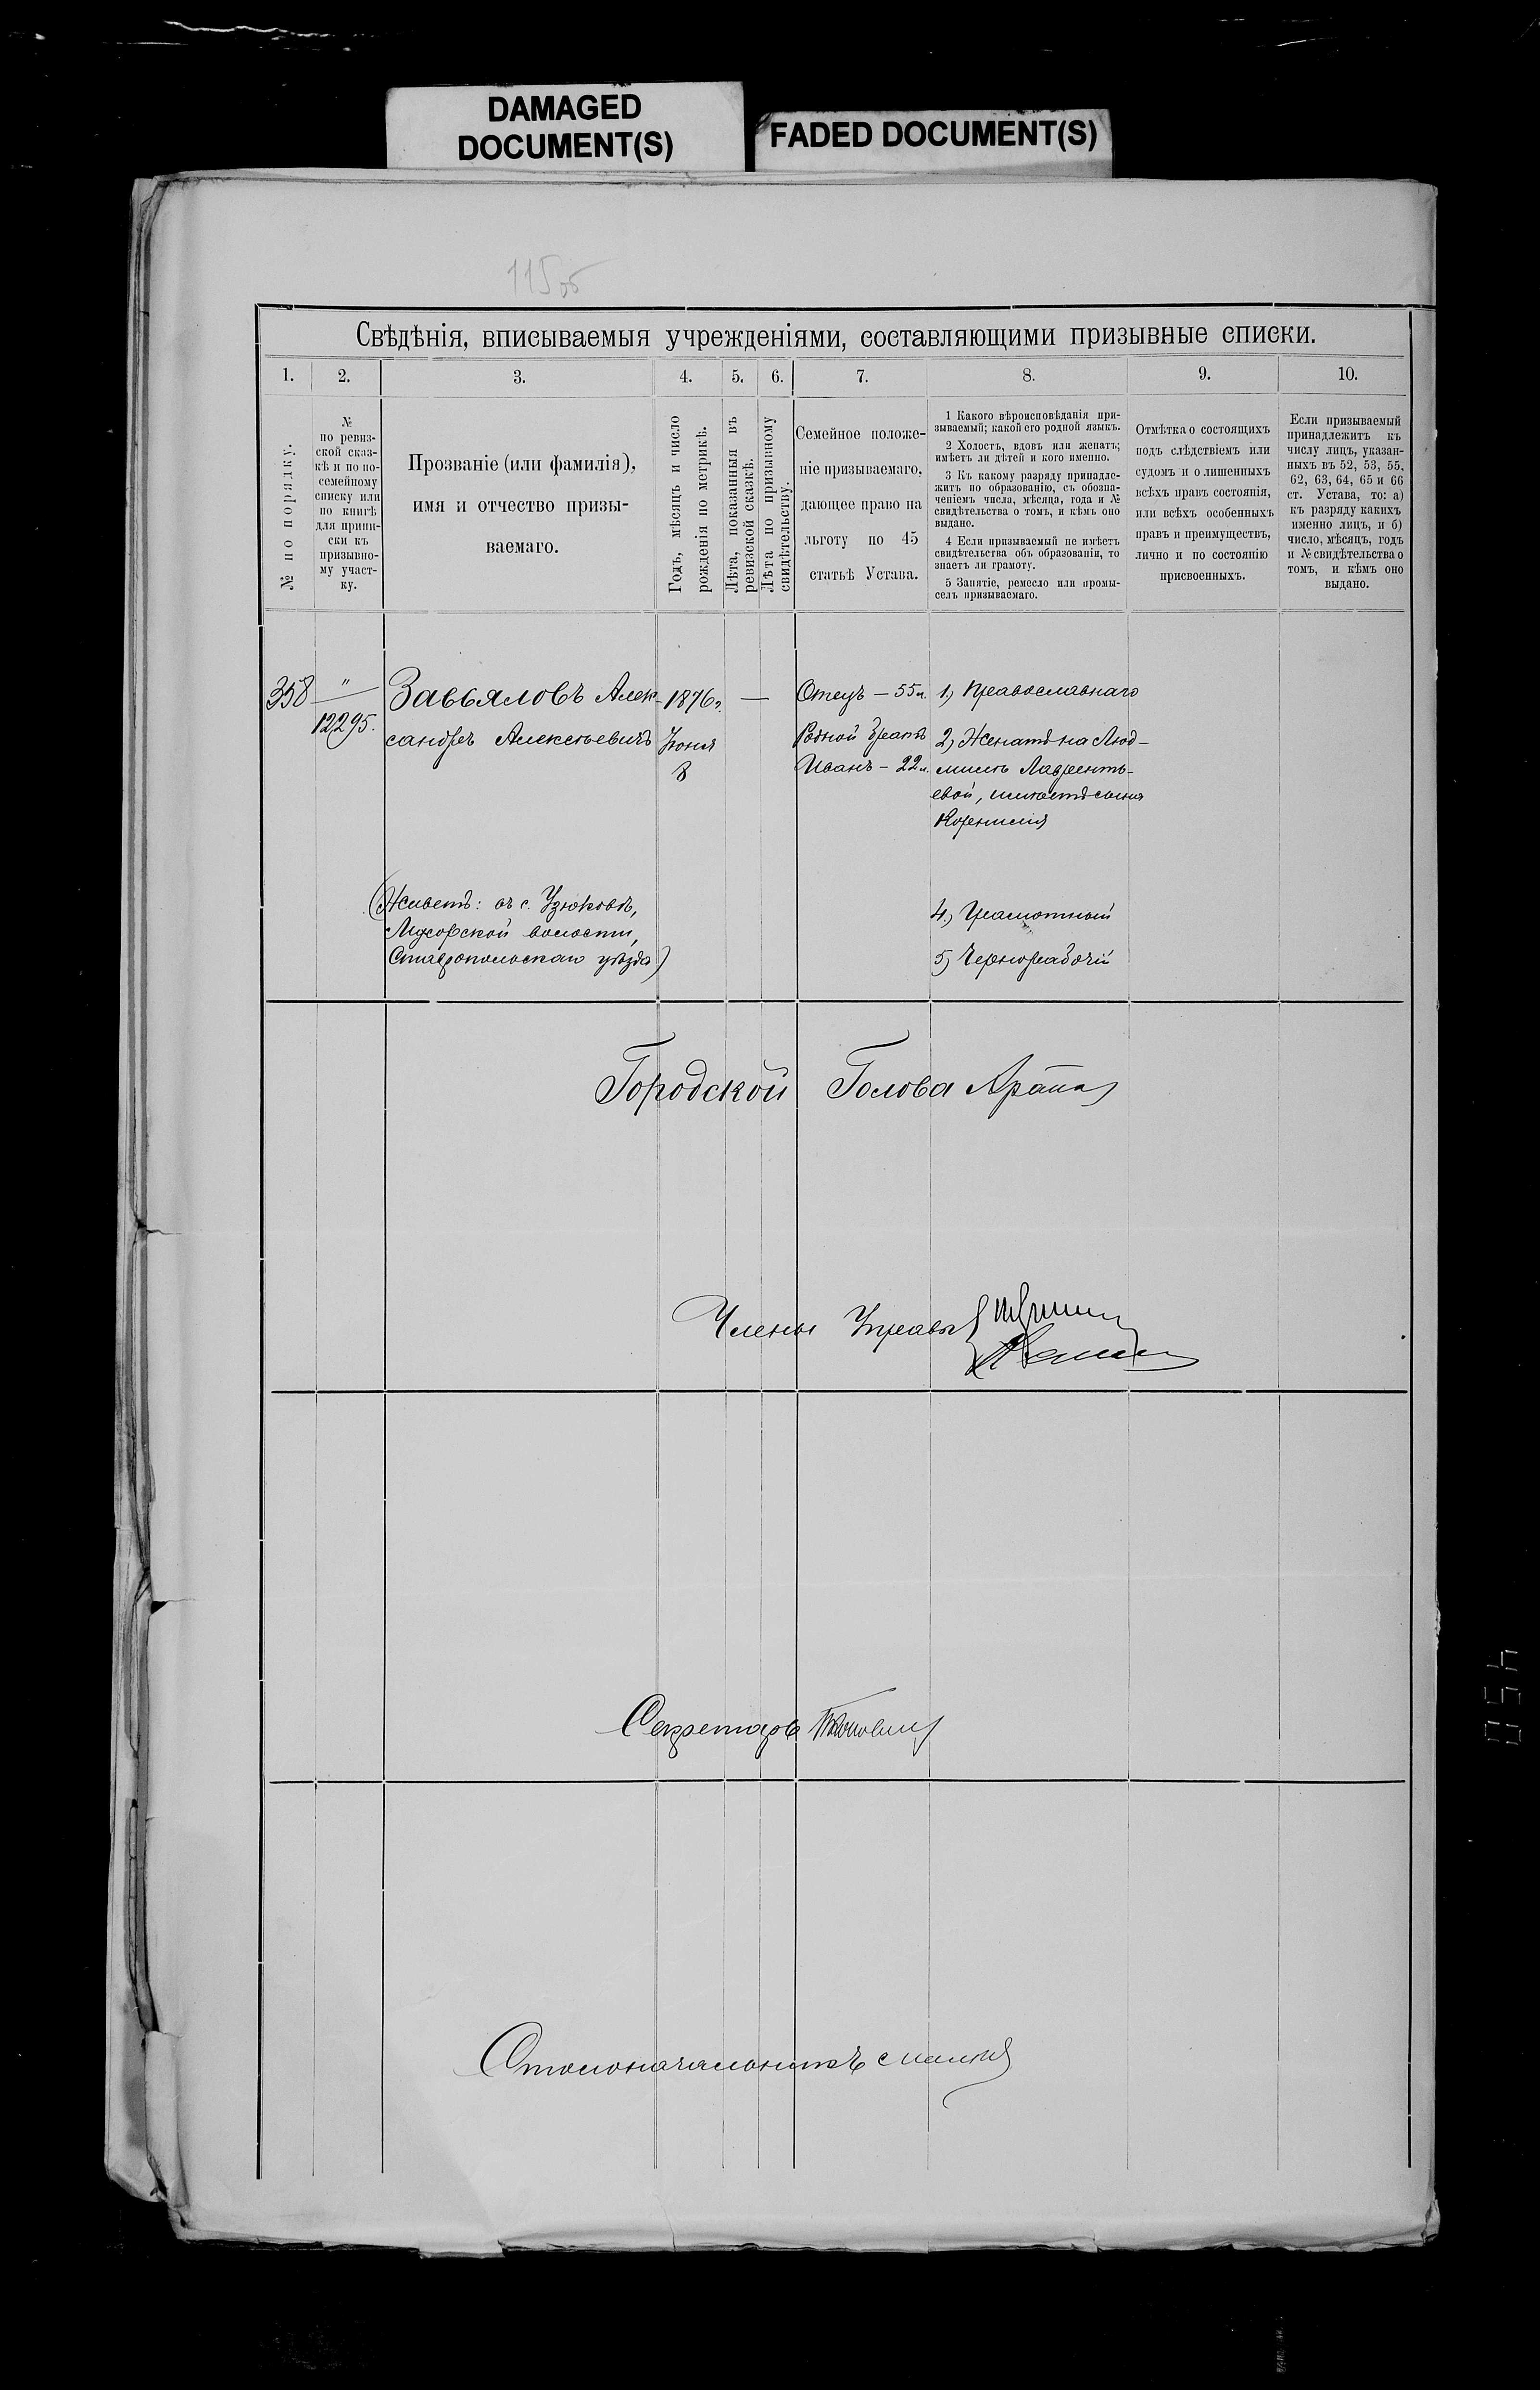 DAMAGED
DOCUMENT(S)
FADED DOCUMENT(S)
115об
Свѣдѣнія, вписываемыя учрежденіями, составляющими призывные списки.
1. 2. 3. 4. 5. 6. 7. 8. 9. 10.
№ по порядку.
№
по ревиз-
ской сказ-
кѣ и по по-
семейному
списку или
по книгѣ
для припи-
ски къ
призывно-
му участ-
ку.
Прозваніе (или фамилія),
имя и отчество призы-
ваемаго.
Годъ, мѣсяцъ и число
рожденія по метрикѣ.
Лѣта, показанныя въ
ревизской сказкѣ.
Лѣта по призывному
свидѣтельству.
Семейное положе-
ніе призываемаго,
дающее право на
льготу по 45
статьѣ Устава.
1 Какого вѣроисповѣданія при-
зываемый; какой его родной языкъ.
2 Холостъ, вдовъ или женатъ;
имѣетъ ли дѣтей и кого именно.
3 Къ какому разряду принадле-
житъ по образованію, съ обозна-
ченіемъ числа, мѣсяца, года и №
свидѣтельства о томъ, и кѣмъ оно
выдано.
4 Если призываемый не имѣетъ
свидѣтельства объ образованіи, то
знаетъ ли грамоту.
5 Занятіе, ремесло или промы-
селъ призываемаго.
Отмѣтка о состоящихъ
подъ слѣдствіемъ или
судомъ и о лишенныхъ
всѣхъ правъ состоянія,
или всѣхъ особенныхъ
правъ и преимуществъ,
лично и по состоянію
присвоенныхъ.
Если призываемый
принадлежитъ къ
числу лицъ, указан-
ныхъ въ 52, 53, 55,
62, 63, 64, 65 и 66
ст. Устава, то: а)
къ разряду какихъ
именно лицъ, и б)
число, мѣсяцъ, годъ
и № свидѣтельства о
томъ, и кѣмъ оно
выдано.
358
"
12295.
Завьяловъ Алек-
сандръ Алексѣевичъ
1876 г.
Іюня
8
—
Отецъ — 55 л.
Родной братъ
Иванъ — 22 л.
1) Православнаго
2) Женатъ на Люд-
милѣ Лаврентъ-
евой, имѣетъ сына
Корнилія
(Живетъ: въ с. Узюковѣ,
Мусорской волости,
Ставропольскаго уѣзда)
4) Грамотный
5) Чернорабочій
Городской Голова
Члены Управы
Секретарь
Столоначальникъ
450